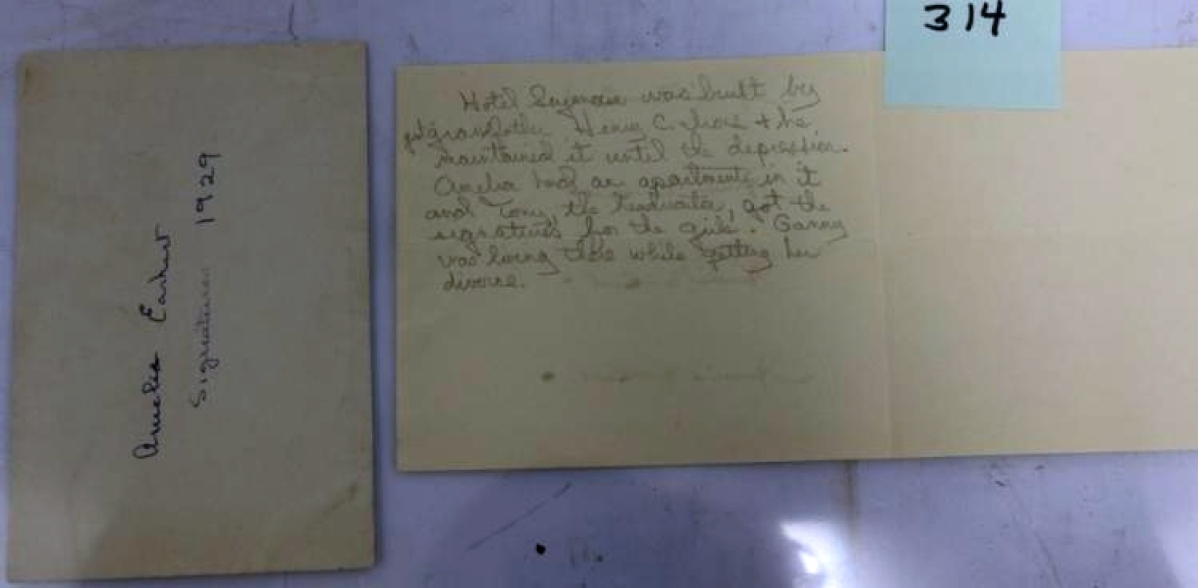 314
Amelia Earhart
Signatures 1929
Hotel Seymour was built by
gd grandfather Henry C. & he
maintained it until the depression.
Amelia had an apartment in it
and Tony, the headwaiter, got the
signatures for the girls. Ganny
was living there while getting her
divorce.